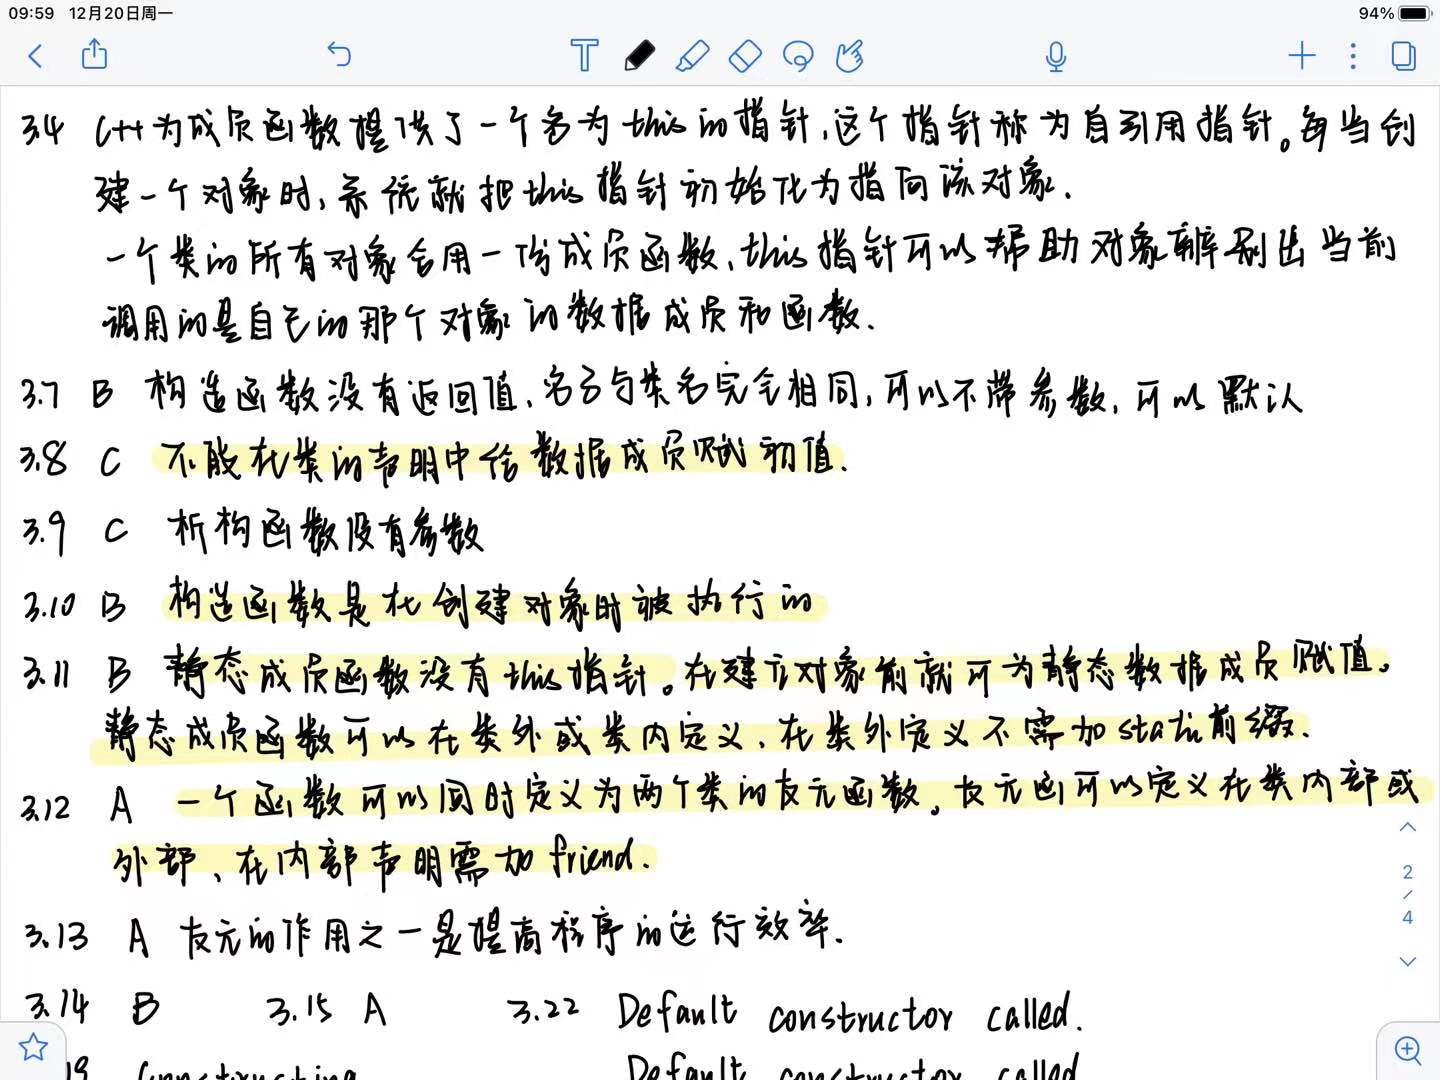 09:59 12月20日周一 94%
3.4 C++为成员函数提供了一个名为this的指针,这个指针称为自引用指针。每当创
建一个对象时,系统就把this指针初始化为指向该对象.
一个类的所有对象合用一份成员函数,this指针可以帮助对象辨别出当前
调用的是自己的那个对象的数据成员和函数.
3.7 B 构造函数没有返回值,名字与类名完全相同,可以不带参数,可以默认
3.8 C 不能在类的声明中给数据成员赋初值.
3.9 C 析构函数没有参数
3.10 B 构造函数是在创建对象时被执行的
3.11 B 静态成员函数没有this指针。在建立对象前就可为静态数据成员赋值。
静态成员函数可以在类外或类内定义,在类外定义不需加static前缀.
3.12 A 一个函数可以同时定义为两个类的友元函数。友元函可以定义在类内部或
外部、在内部声明需加friend.
3.13 A 友元的作用之一是提高程序的运行效率.
3.14 B 3.15 A 3.22 Default constructor called.
19 Constructing Default constructor called
2
/
4